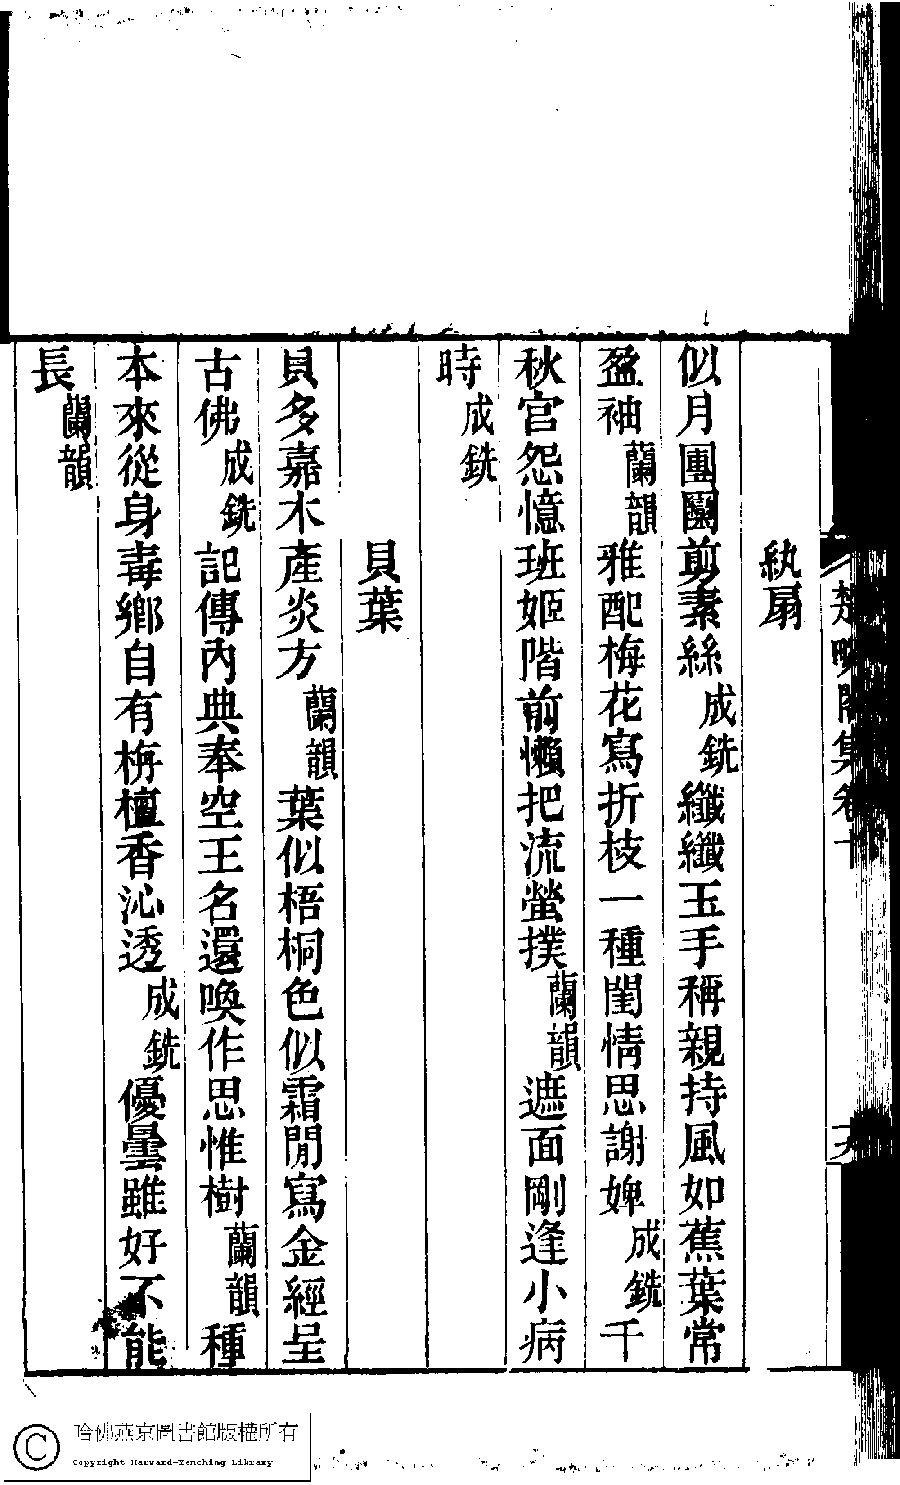 紈扇
似月團圞剪素絲成銑纖纖玉手稱親持風如蕉葉常
盈袖蘭韻雅配梅花寫折枝一種閨情思謝婢成銑千
秋宫怨憶班姬階前懶把流螢撲蘭韻遮面剛逢小病
時成銑
貝葉
貝多嘉木產炎方蘭韻葉似梧桐色似霜閒寫金經呈
古佛成銑記傳內典奉空王名還喚作思惟樹蘭韻種
本來從身毒鄉自有栴檀香沁透成銑優曇雖好不能
長蘭韻
哈佛燕京圖書館版權所有
Copyright Harvard-Yenching Library